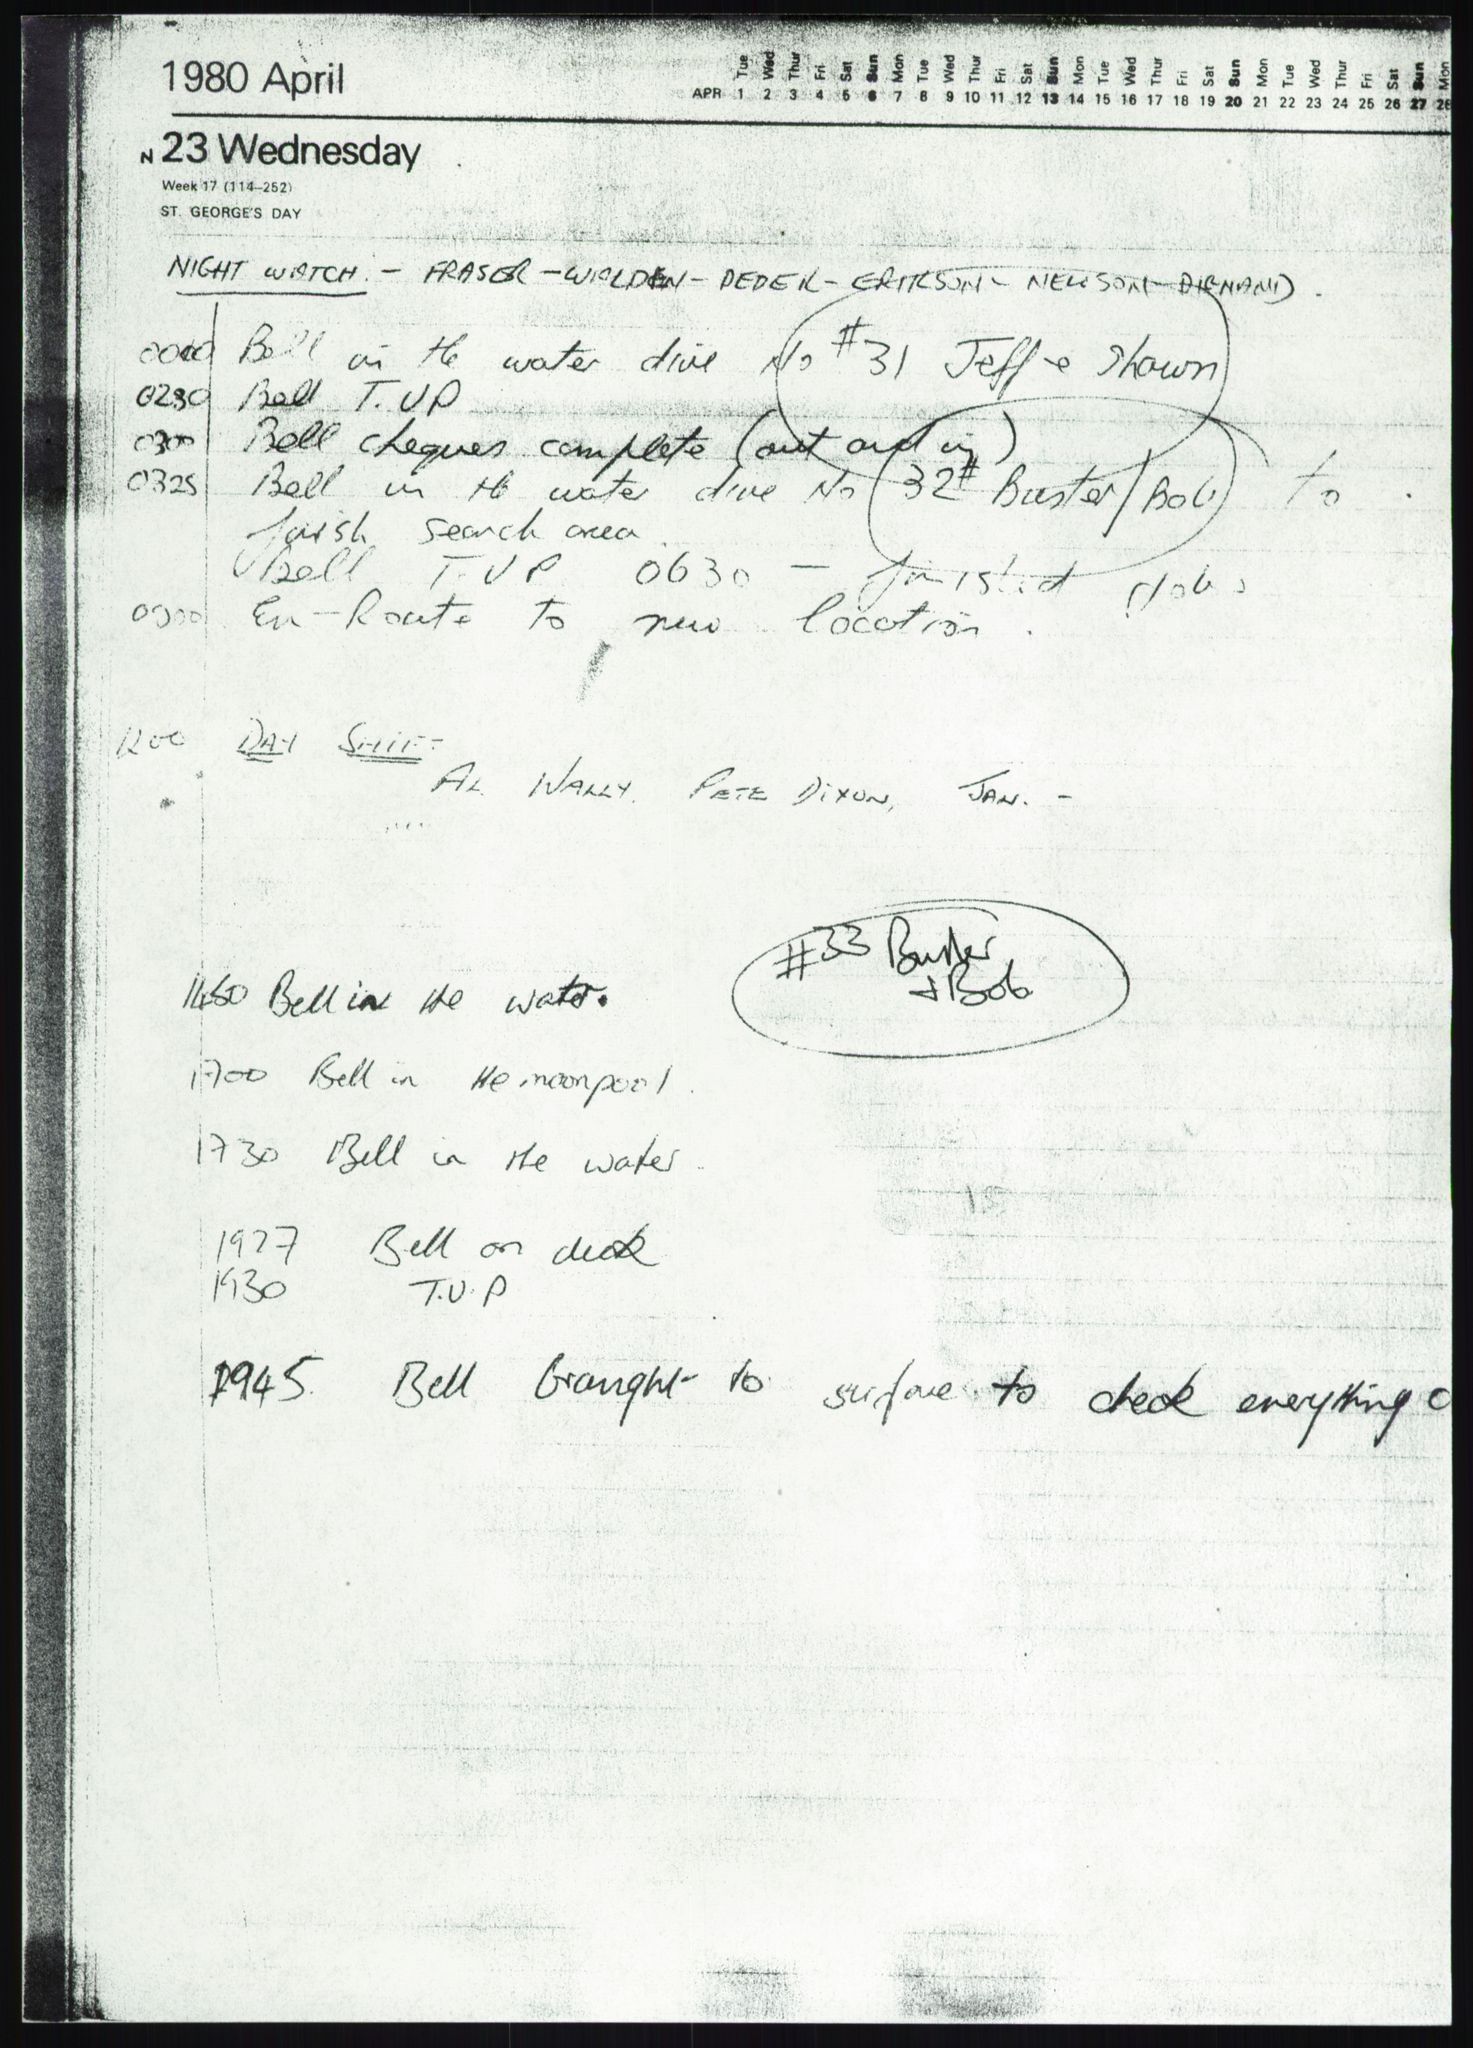 1980 April
Tue Wed Thur Fri Sat Sun Mon Tue Wed Thur Fri Sat Sun Mon Tue Wed Thur Fri Sat Sun Mon Tue Wed Thur Fri Sat Sun Mon
APR 1 2 3 4 5 6 7 8 9 10 11 12 13 14 15 16 17 18 19 20 21 22 23 24 25 26 27 28
N 23 Wednesday
Week 17 (114–252)
ST. GEORGE'S DAY
NIGHT WATCH :- FRASER - WALDEN - PEDER - ERIKSON - NELSON -
0000 Bell in the water dive No #31 Jeff + Shawn
0230 Bell T.UP
0300 Bell cheques complete (out and in)
0325 Bell in the water dive No 32# Buster/Bob to
finish search area
Bell T.UP 0630 - finished job
0900 En-Route to new location.
1200 DAY SHIFT
AL WALLY. PETE DIXON, JAN. -
#33 Buster
+ Bob
1450 Bell in the water.
1700 Bell in the moonpool.
1730 Bell in the water.
1927 Bell on deck
1930 T.U.P
1945. Bell braught to surface to check everything o